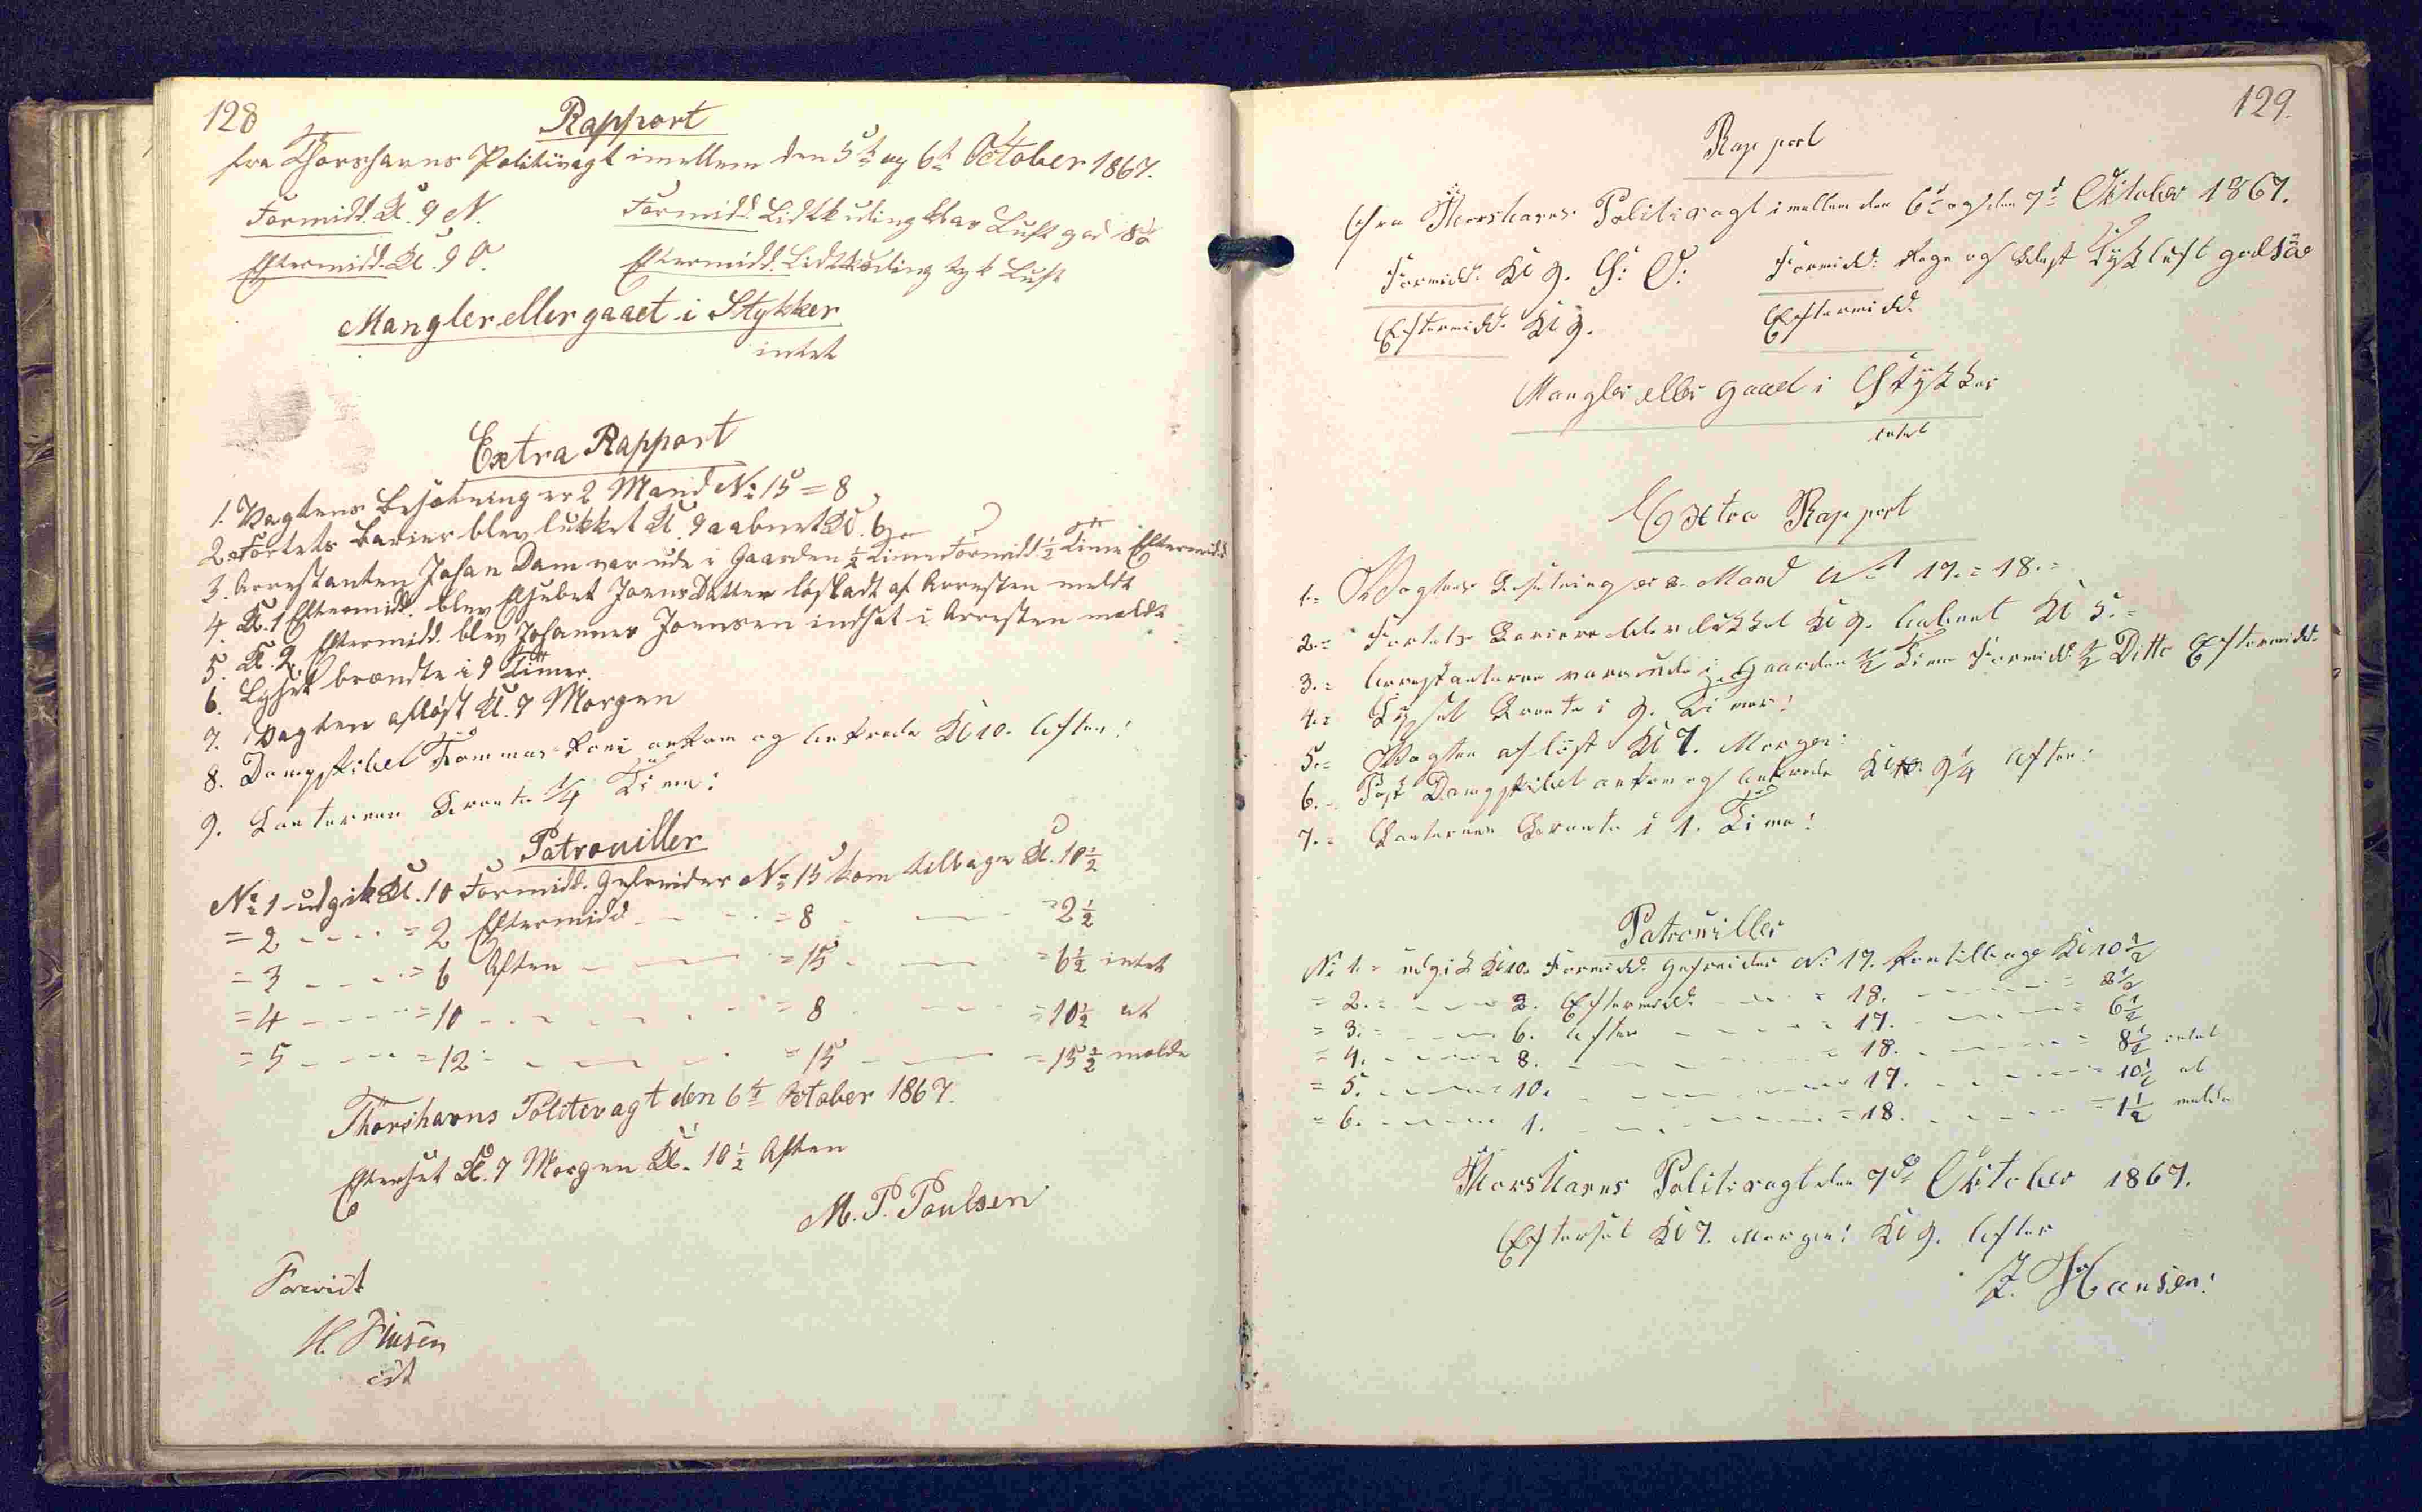 128
Rapport
fra Thorshavns Politivagt imellem den 5te og 6te October 1867.
Formidd. Kl. 9 N. Formidd. Lidt kuling klar Luft god Sÿn
Eftermidd. Kl. 9 O. Eftermidd. Lidt kuling tyk Luft
Mangler eller gaaet i Stykker
intet
Extra Rapport
1. Vagtens besætning er 2 Mand No 15 = 8
2. Fortets barier blev lukket Kl. 9 aabnet Kl. 6
3. Arrestanten Johan Dam var ude i Gaarden ½ Time Formidd. ½ Time Eftermidd.
4. Kl. 1 Eftermidd. blev Elsebet Joens Datter løsladt af Arresten meldt
5. Kl. 2 Eftermidd. blev Johannes Joensen indsat i Arresten meldt
6. Lyset brændte i 9 Timer.
7. Vagten afløst Kl. 7 Morgen
8. Dampskibet Tommas ankom og Kl 10. Aften!
9. Lanternen Brænte ¼ Time!
Patrouiller
No 1 udgik Kl. 10 Formidd. Gefreider No 15 kom tilbage Kl. 10½
= 2 - - - = 2 Eftermidd - - = 8 - - = 2½
= 3 - - - = 6 Aften - - = 15 - - = 6½ intet
= 4 - - - = 10 - - - = 8 - - = 10½ at
= 5 - - - = 12 - - - = 15 - - = 15½ melde
Thorshavns Politivagt den 6te October 1867.
Efterset Kl. 7 Morgen Kl. 10½ Aften
M. P. Poulsen
Forevist
H. Finsen
cst
129.
Rapport
Fra Thorshavns Politivagt imellem den 6te og den 7de Oktober 1867.
Formidd. Kl 9. S: O: Formidd: Rege og blest Tyk luft god Sÿn
Eftermidd. Kl 9. Eftermidd.
Mangler eller gaaet i Stykker
intet
Extra Rapport
1.= Vagtens Besetning er 2. Mand No 17. = 18.=
2.= Fortets Bariere blev lukket Kl 9. aabnet Kl 5.=
3.= Arrestanterne var ude i Gaarden ½ Time Formidd. ½ Ditto Eftermidd.
4.= Lyset Brente i 9. Timer!
5.= Vagten afløst Kl 7. Morgen!
6.= Post Dampskibet ankom og Kl 9¼ Aften!
7.= Lanternen Brente i 1. Time!
Patrouiller
No 1.= udgik Kl 10. Formidd. Gefreider No 17. kom tilbage Kl 10½
= 2.= - - - 2. Eftermidd. - - = 18. - - - = 2½
= 3.= - - - 6. Aften - - - = 17. - - - = 6½
= 4. - - - 8. - - - = 18. - - - = 8½ intet
= 5. - - - 10. - - - 17. - - - = 10½ at
= 6. - - - 1. - - - = 18. - - - = 1½ melde
Thorshavns Politivagt den 7de Oktober 1867.
Efterset Kl 7. Morgen! Kl 9. Aften
J. Hansen!